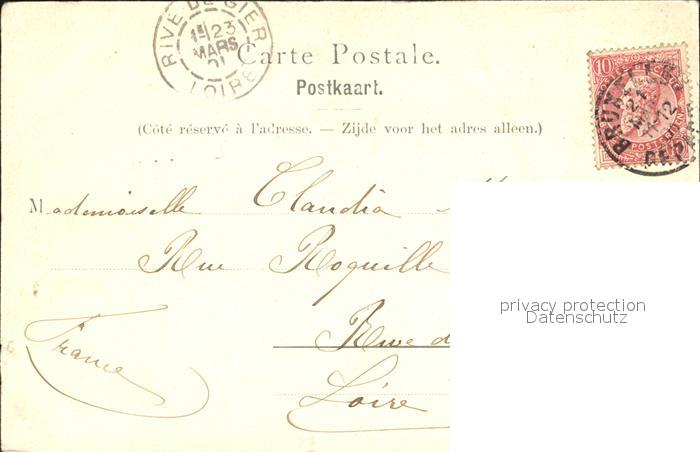 RIVE DE GIER
1E/23
MARS
01
LOIRE
Carte Postale.
Postkaart.
(Côté réservé à l'adresse. — Zijde voor het adres alleen.)
10
21
12
Mademoiselle Claudia
Rue Roquille
Rive d
Loire
France
privacy protection
Datenschutz